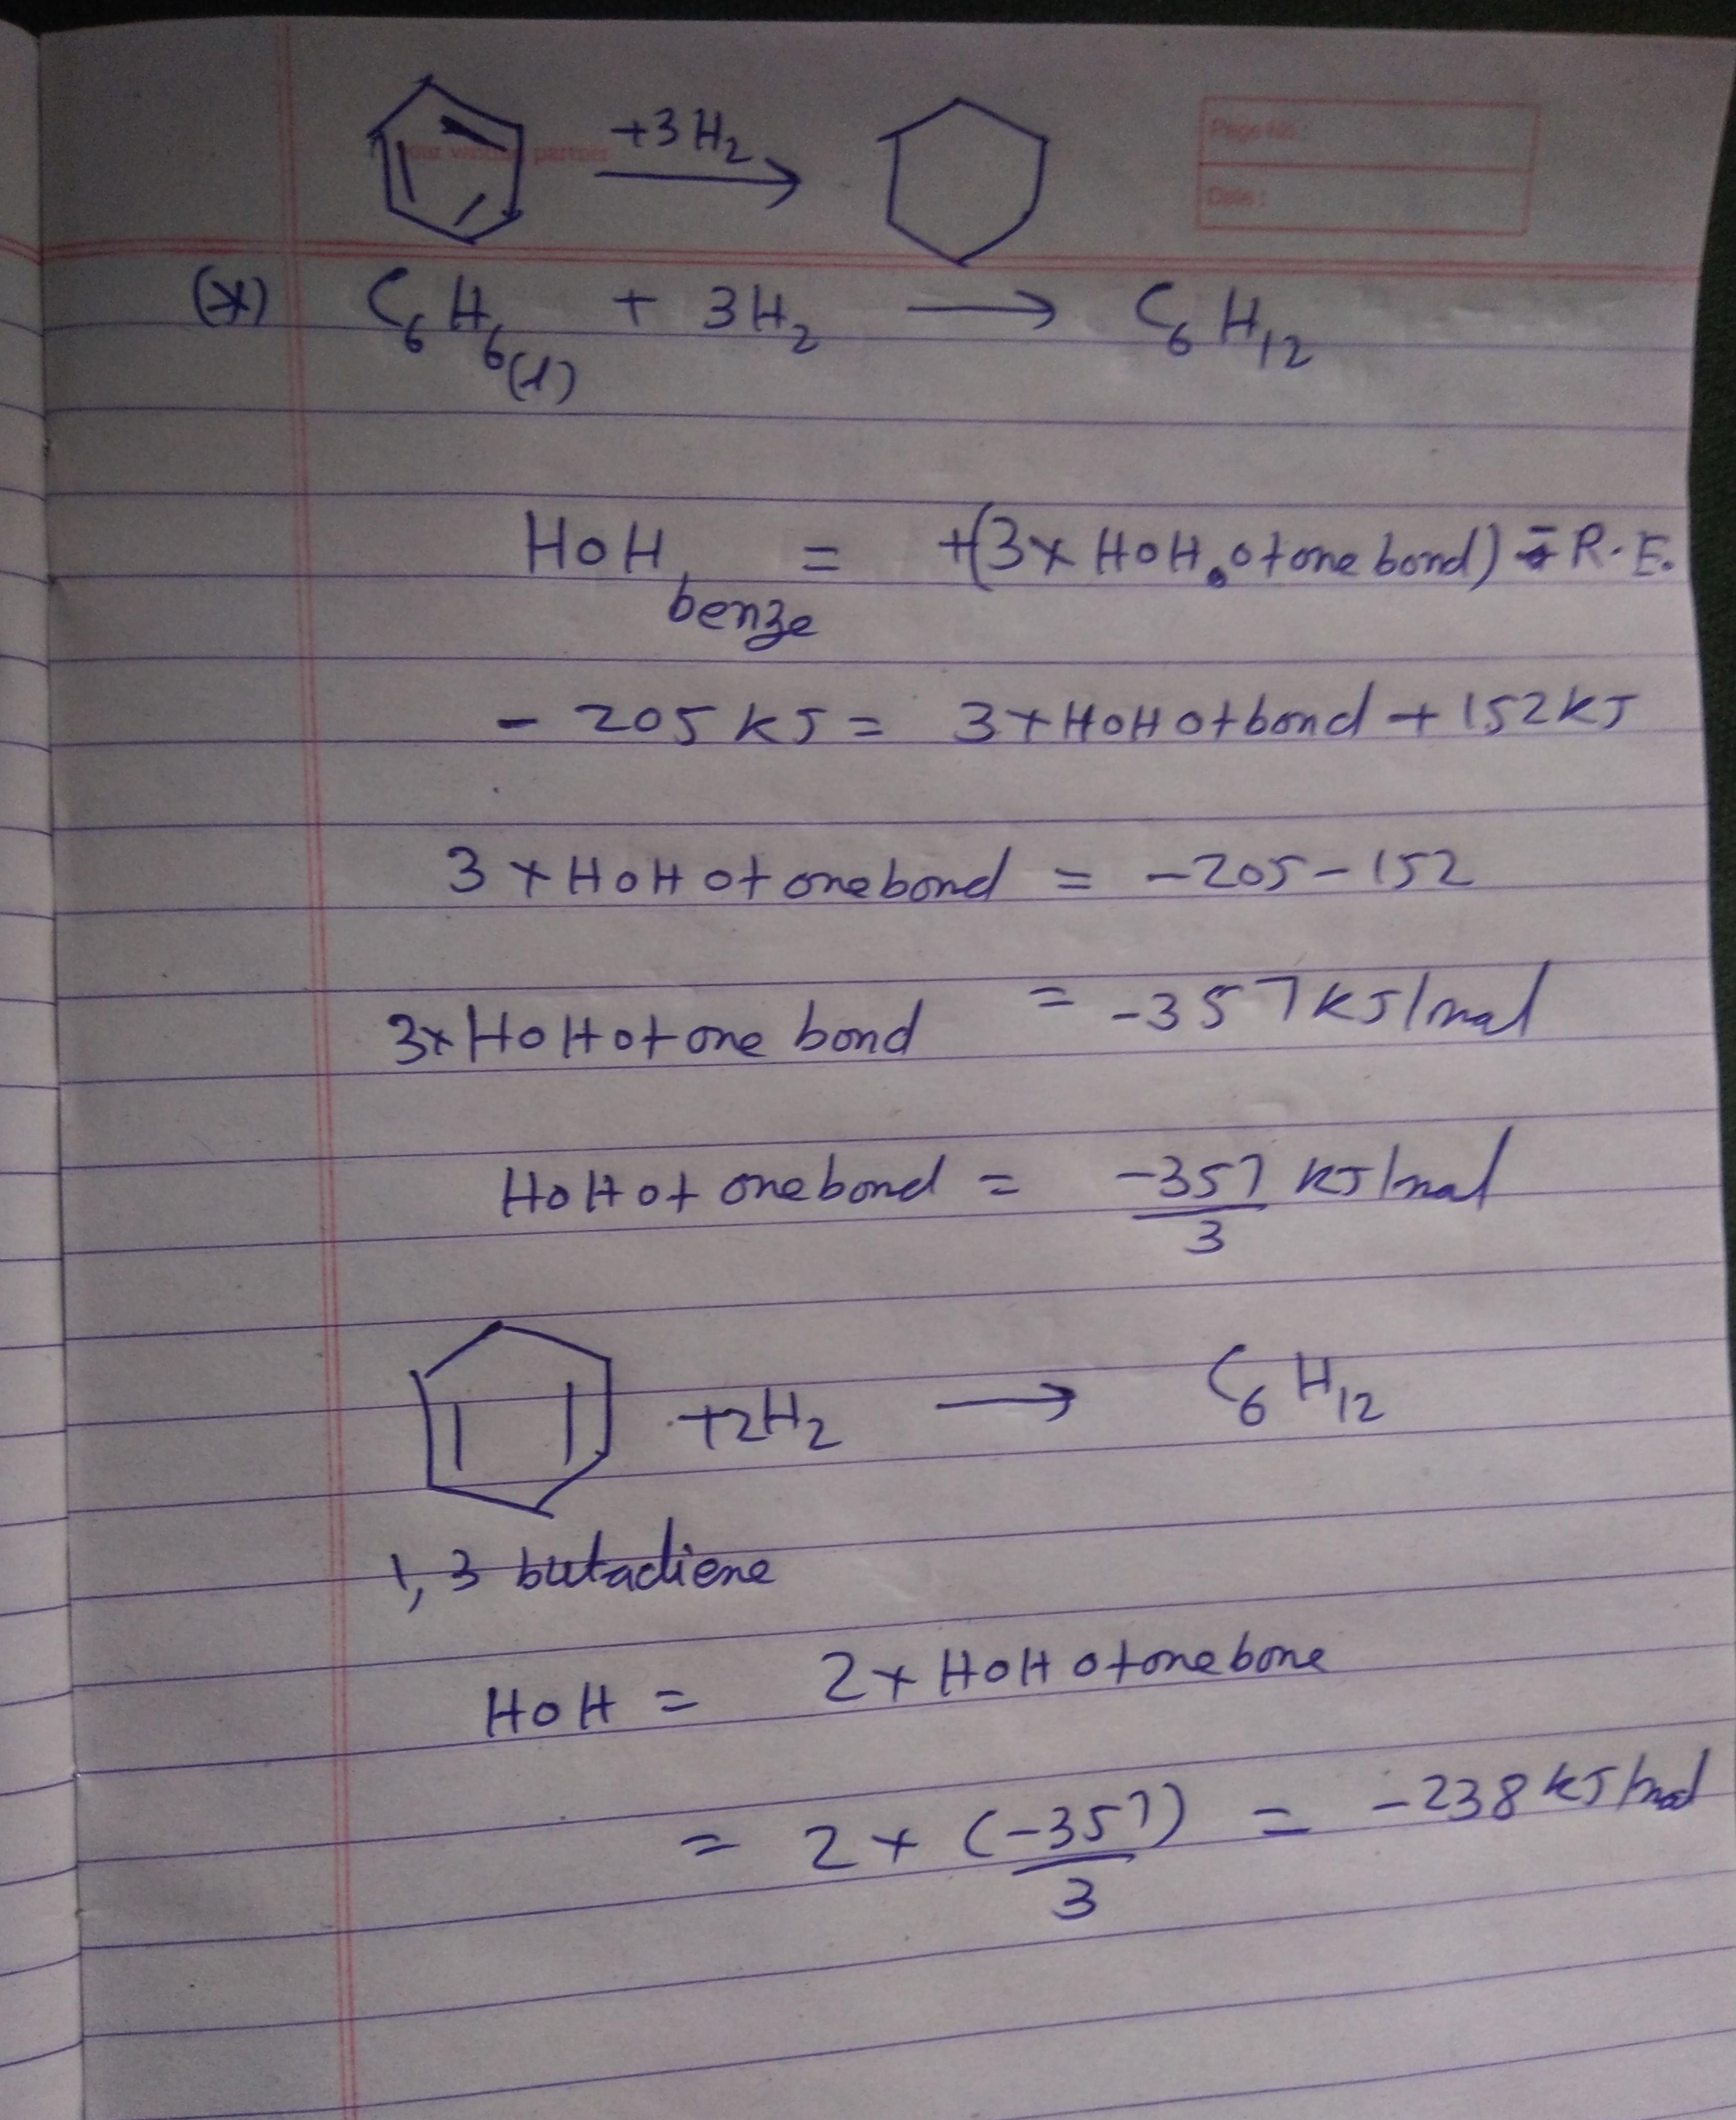 +3H₂
Page No.:
Date:
(*) C₆H₆(l) + 3H₂ → C₆H₁₂
HOH benze = +(3x HOH of one bond) - R.E.
- 205 KJ = 3 x HOH of bond + 152KJ
3 x HOH of one bond = -205-152
3x HOH of one bond = -357 KJ/mol
HOH of one bond = -357/3 KJ/mol
+2H₂ → C₆H₁₂
1,3 butadiene
HOH = 2 x HOH of one bone
= 2 x (-357)/3 = -238 KJ/mol